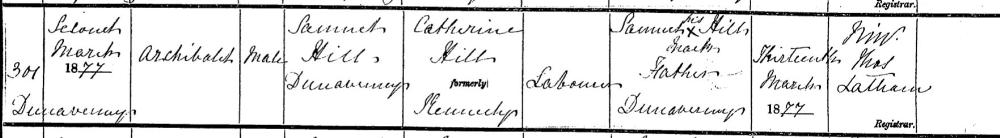 Registrar.
301
Second
March
1877
Dunaverney
Archibald
Male
Samuel
Hill
Dunaverney
Catherine
Hill
formerly
Kennedy
Labourer
Samuel his X Hill
mark
Father
Dunaverney
Thirteenth
March
1877
Thos
Latham
Registrar.